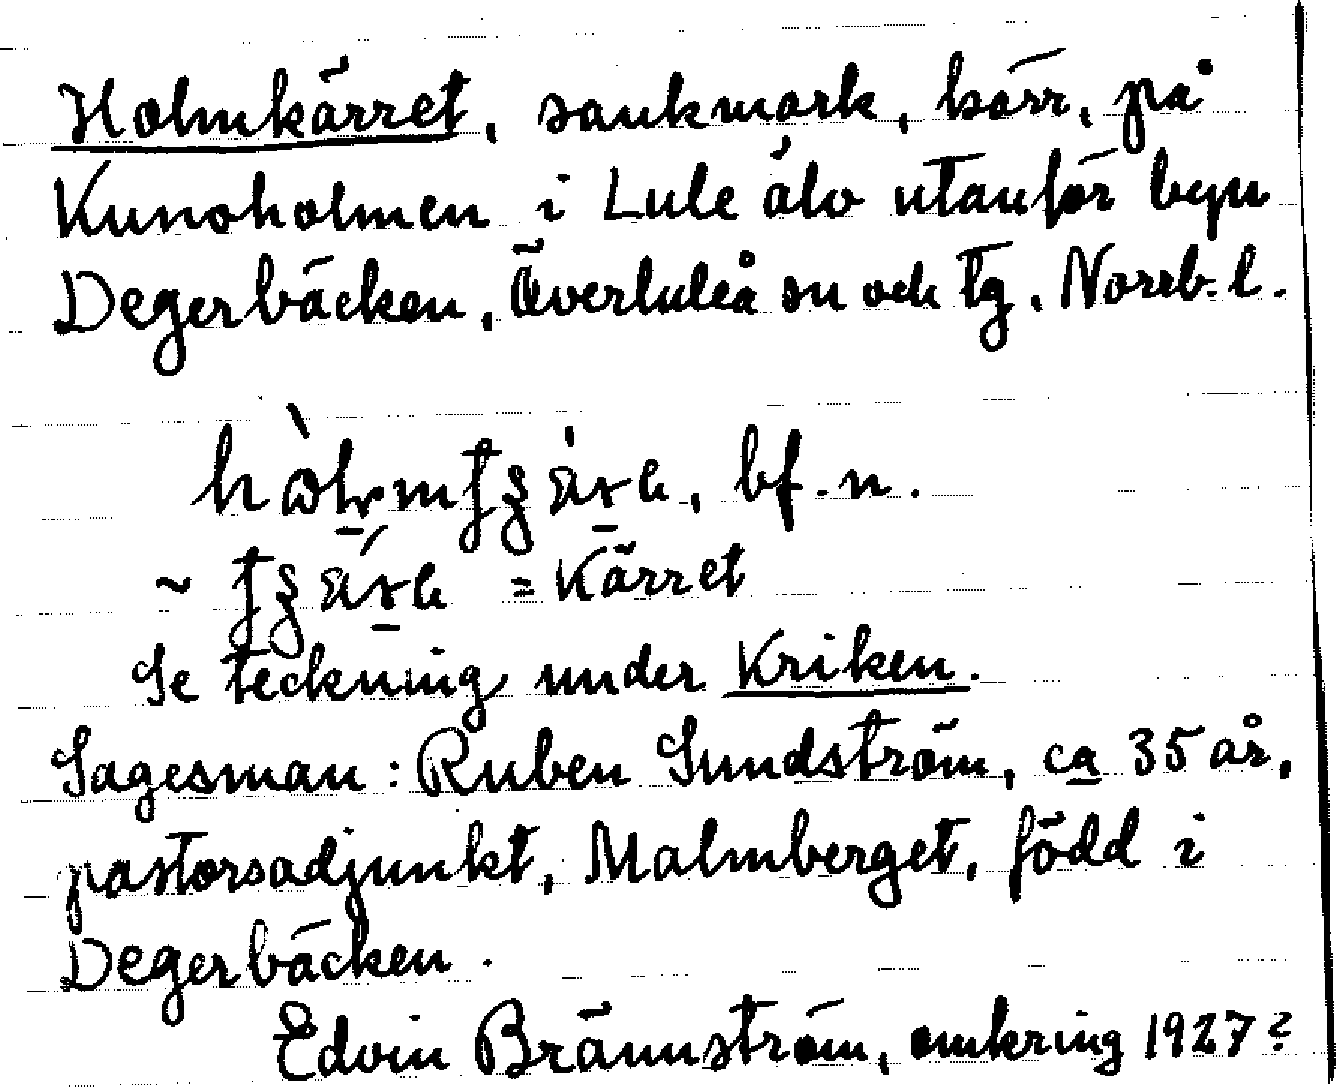 Holmkärret, sankmark, kärr, på
Kunoholmen i Lule älv utanför byn
Degerbäcken, Överluleå sn och tg. Norrb. l.
bf. n.
~ = Kärret
Se teckning under Kriken.
Sagesman: Ruben Sundström, ca 35 år,
pastorsadjunkt, Malmberget, född i
Degerbäcken.
Edvin Brännström, omkring 1927?